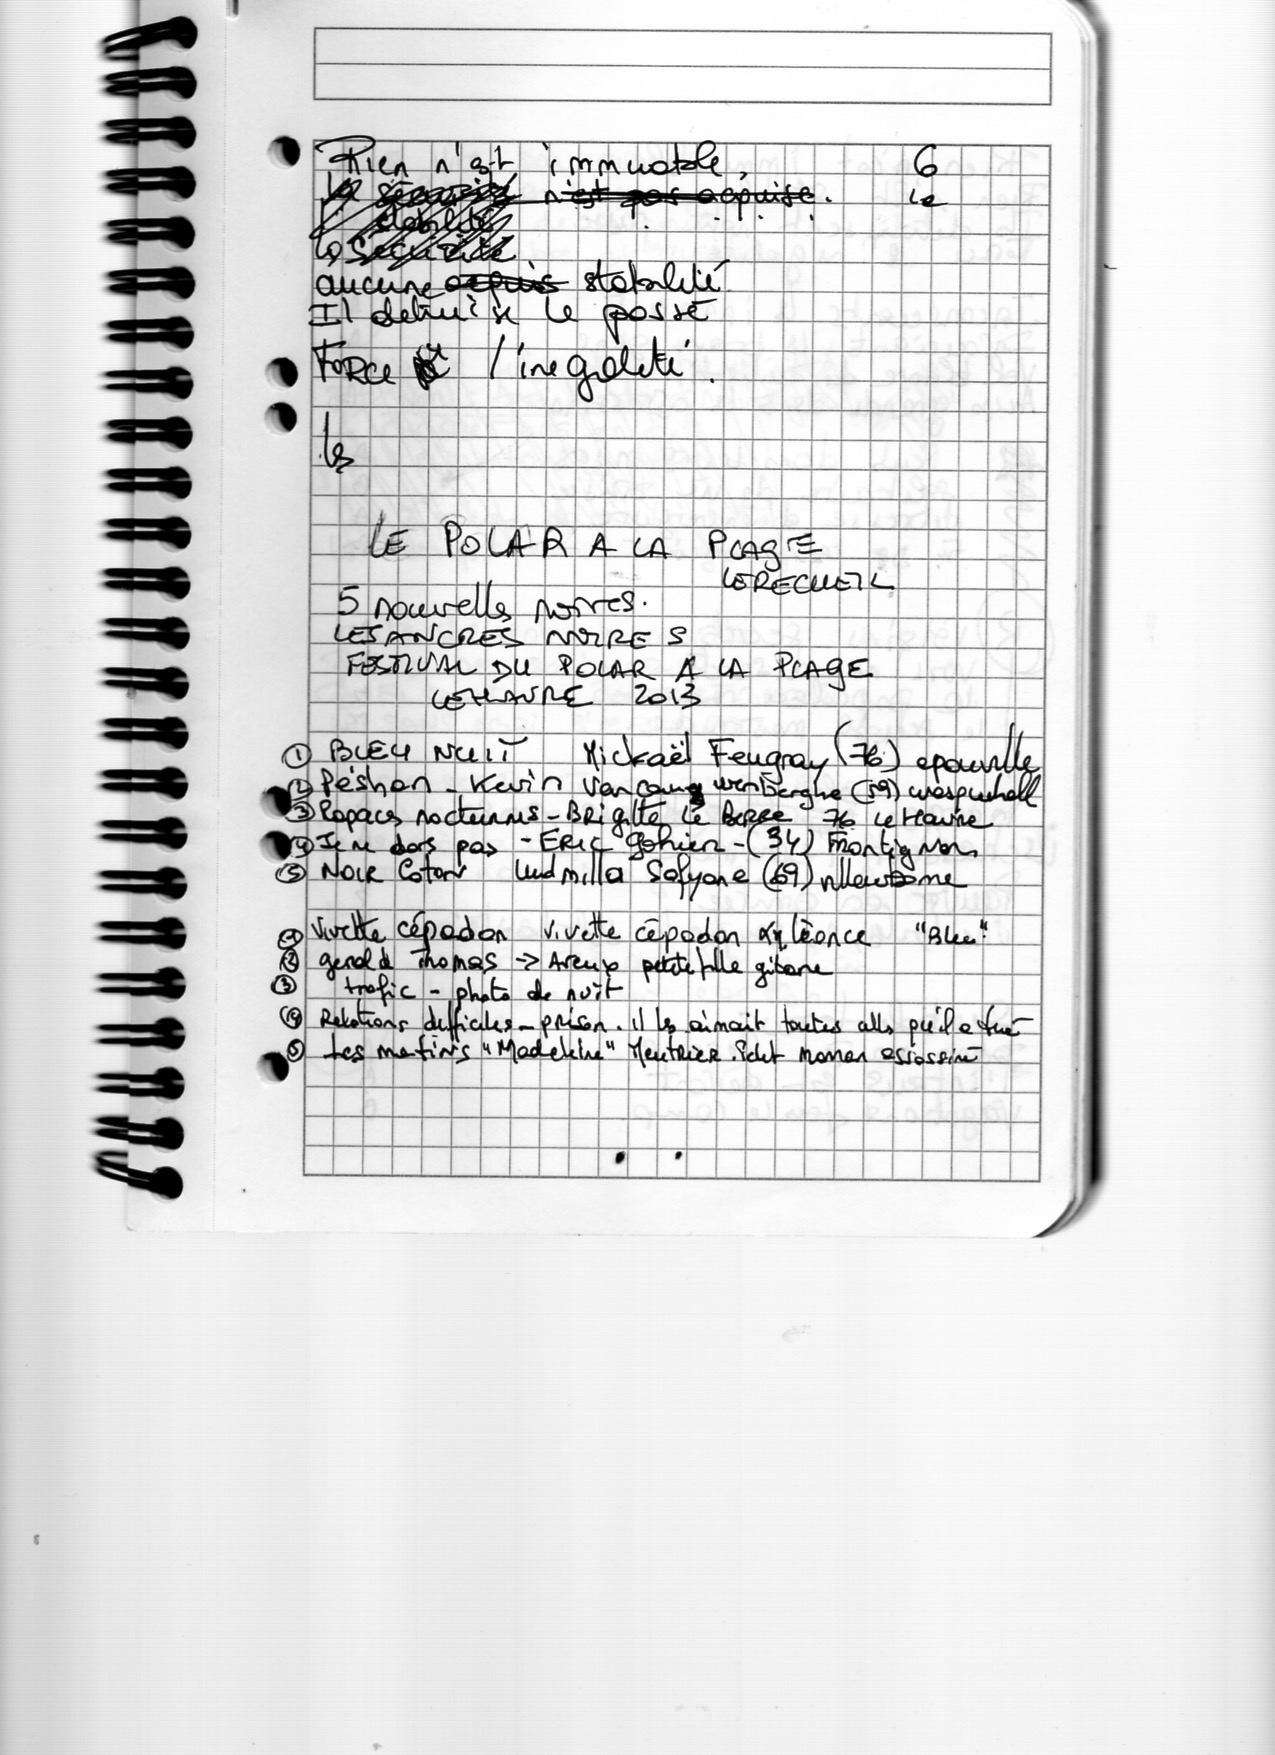 Rien n'est immuable, 6
la sécurité n'est pas acquise. le
stabilité
la sécurité
aucune depuis stabilité
Il détruise le passé
FORCE l'inégalité.
les
LE POLAR A LA PLAGE
LE RECUEIL
5 nouvelles noires.
LES ANCRES NOIRES
FESTIVAL DU POLAR A LA PLAGE
LE HAVRE 2013
① BLEU NUIT Mickaël Feugray (76) epouville
② Péshan - Kevin Vancauwenberghe (59) wasquehall
③ Rapaces nocturnes - BRigitte Le Berre 76 Le Havre
④ Je ne dors pas - ERIC Gohier - (34) Frontignan
⑤ NOIR Coton Ludmilla Safyane (69) villeurbanne
① Vivette cépadon vivette cépadon Léonce "Bleu"
② Gerald Thomas → petite fille gitane
③ trafic - photo de nuit
④ Relations difficiles - prison. il les aimait toutes alls qu'il a tué
⑤ Les matins "Madeleine" Meurtrier. maman assassiné